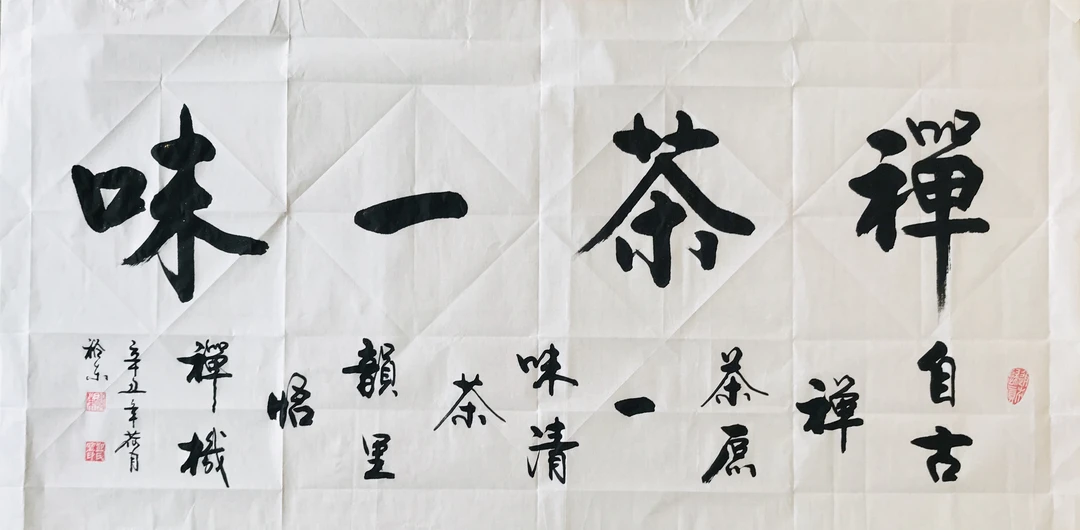 禪茶一味
自古
禪
茶原
一
味清
茶
韻里
悟
禪機
辛丑年荷月